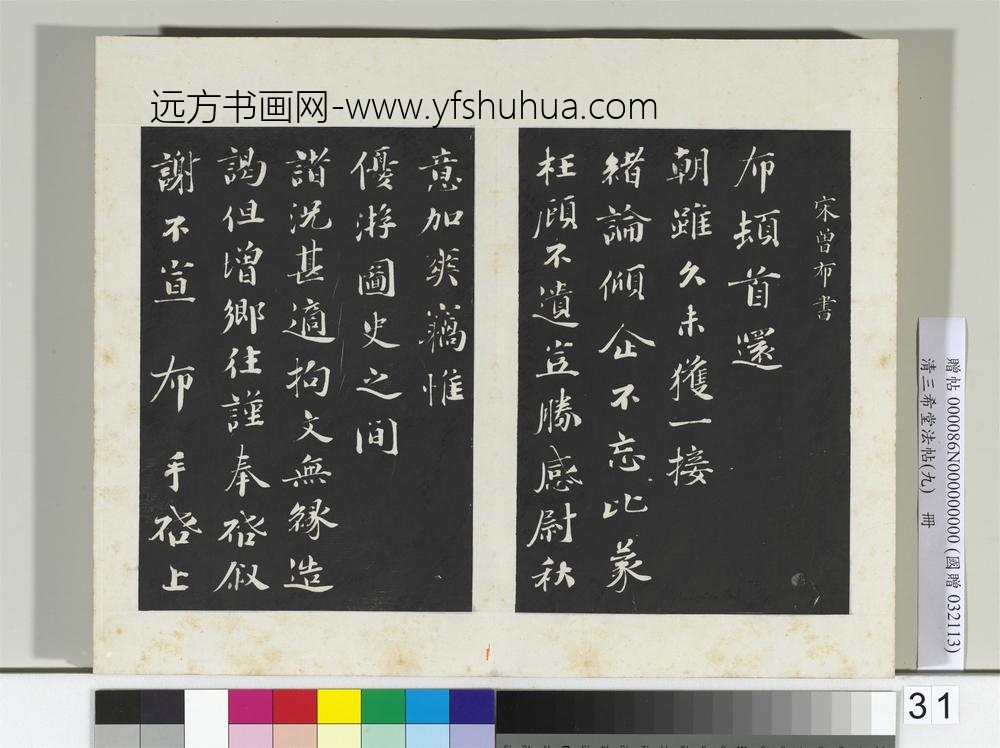 远方书画网-www.yfshuhua.com
宋曾布書
布頓首還
朝雖久未獲一接
緒論傾企不忘比蒙
枉顧不遺豈勝感尉秋
意加爽竊惟
優游圖史之間
諧況甚適拘文無緣造
謁但增鄉往謹奉啓叙
謝不宣 布 手啓上
贈帖 000086N000000000 (國贈 032113)
清三希堂法帖(九) 冊
31